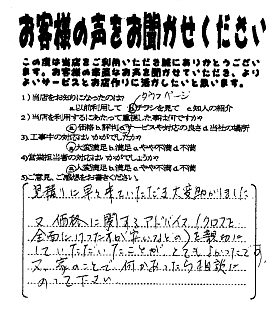 お客様の声をお聞かせください
この度は当店をご利用いただき誠にありがとうござい
ます。お客様の率直なお声を聞かせていただき、より
よいサービスとお店作りに活かしたいと思います。
1)当店をお知りになったのは? タウンページ
a以前利用して bチラシを見て c知人の紹介
2)当店を利用するにあたって重視した事はですか?
a価格 b評判 cサービスや対応の良さ d当社の場所
3)工事中の対応はいかがでしたか?
a大変満足 b満足 cやや不満 d不満
4)営業担当者の対応はいかがでしょうか?
a大変満足 b満足 cやや不満 d不満
5)ご意見、ご感想をお書きください。
見積りに早く来ていただき大変助かりました
又、価格に関するアドバイス(クロスと
全面に行った方が安いなどの)を親切に
していただいたことがとてもよかったです。
又、家のことで何かあったら相談に
のって下さい